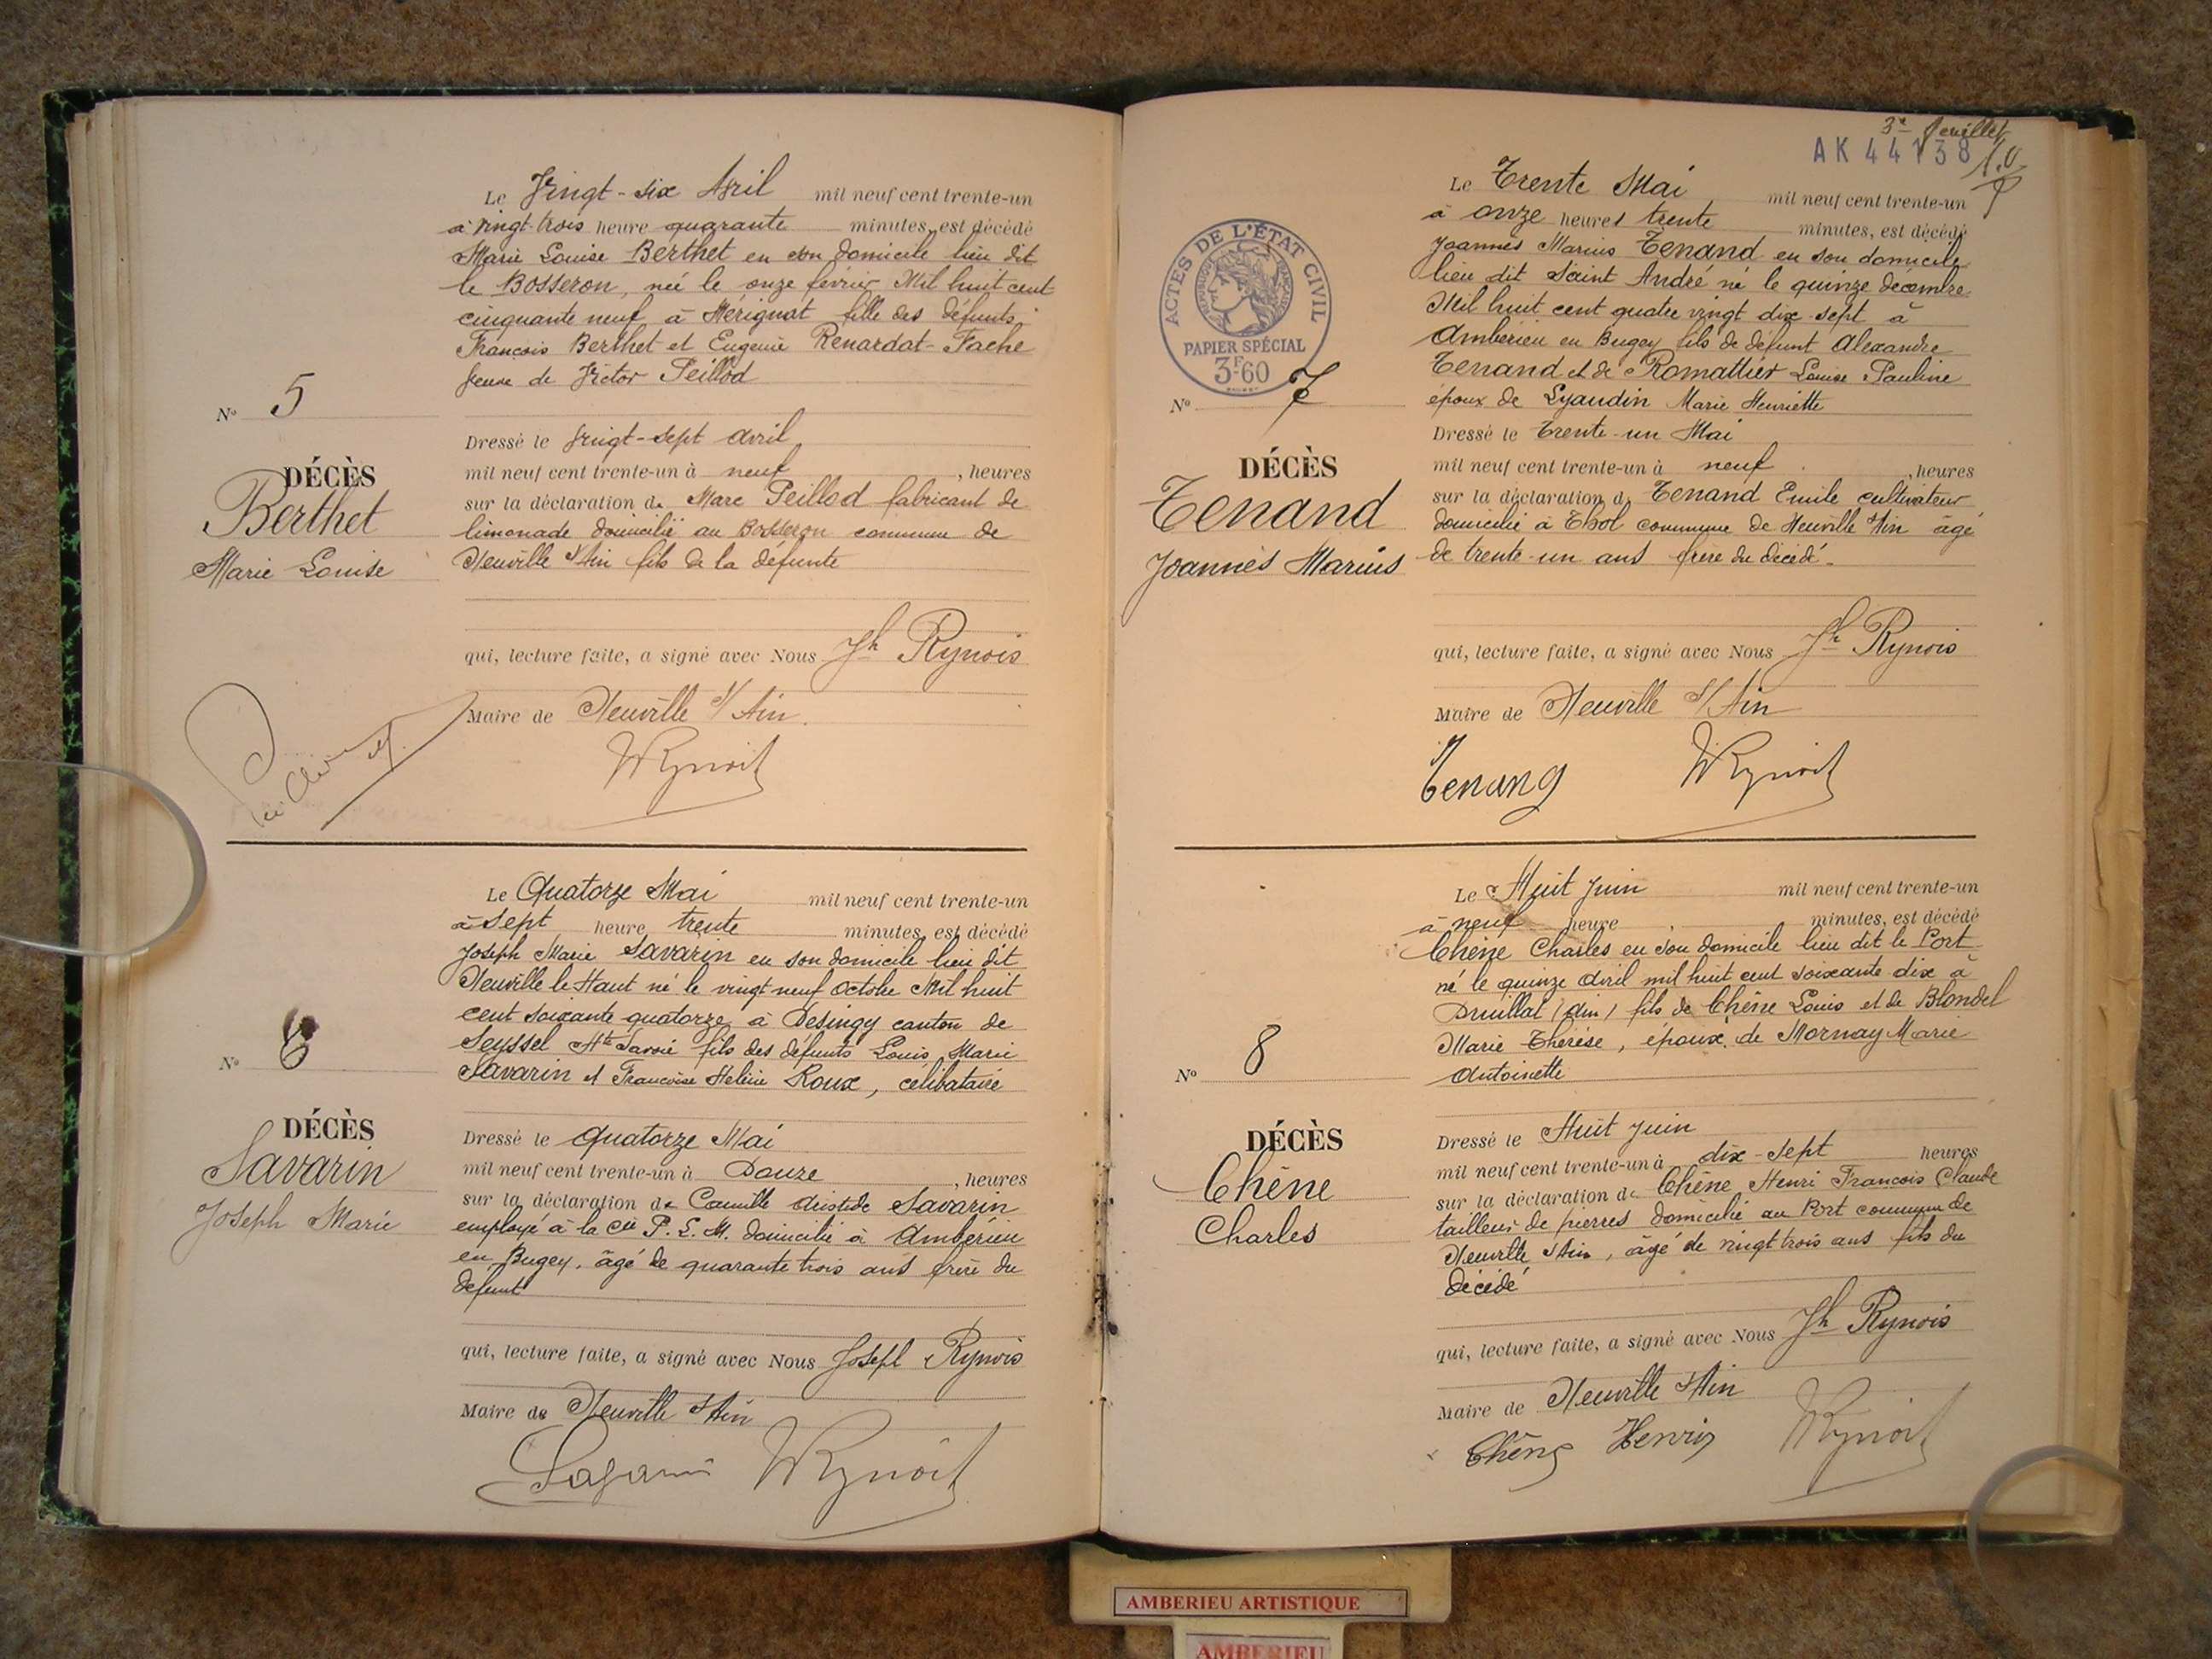 Le Vingt-six Avril mil neuf cent trente-un
à vingt-trois heure quarante minutes, est décédé
Marie Louise Berthet en son domicile lieu dit
le Bosseron, née le onze février Mil huit cent
cinquante neuf à Mérignat fille des défunts
François Berthet et Eugénie Renardat-Fache
Veuve de Victor Peillod
No 5
DÉCÈS
Berthet
Marie Louise
Dressé le vingt-sept avril
mil neuf cent trente-un à neuf, heures
sur la déclaration de Marc Peillod fabricant de
limonade domicilié au Bosseron commune de
Neuville s/Ain fils de la défunte
qui, lecture faite, a signé avec Nous Jh Rynois
Maire de Neuville s/Ain.
Le Quatorze Mai mil neuf cent trente-un
à sept heure trente minutes, est décédé
Joseph Marie Savarin en son domicile lieu dit
Neuville le Haut né le vingt neuf Octobre Mil huit
cent soixante quatorze à Desingy canton de
Seyssel Hte Savoie fils des défunts Louis Marie
Savarin et Françoise Helène Roux, célibataire
No 6
DÉCÈS
Savarin
Joseph Marie
Dressé le Quatorze Mai
mil neuf cent trente-un à Douze, heures
sur la déclaration de Camille Aristide Savarin
employé à la Cie P. L. M. domicilié à Ambérieu
en Bugey, âgé de quarante trois ans frère du
défunt
qui, lecture faite, a signé avec Nous Joseph Rynois
Maire de Neuville s/Ain
3e feuillet
AK 44138
Le Trente Mai mil neuf cent trente-un
à onze heures trente minutes, est décédé
Joannès Marius Tenand en son domicile
lieu dit Saint André né le quinze décembre
Mil huit cent quatre vingt dix-sept à
Ambérieu en Bugey fils de défunt Alexandre
Tenand et de Romattier Louise Pauline
époux de Lyaudin Marie Henriette
ACTES DE L'ÉTAT CIVIL
RÉPUBLIQUE FRANÇAISE
PAPIER SPÉCIAL
3F60
No 7
DÉCÈS
Tenand
Joannès Marius
Dressé le Trente-un Mai
mil neuf cent trente-un à neuf, heures
sur la déclaration de Tenand Emile cultivateur
domicilié à Thol commune de Neuville s/Ain âgé
de trente-un ans frère du décédé
qui, lecture faite, a signé avec Nous Jh Rynois
Maire de Neuville s/Ain
Tenand
Le Huit Juin mil neuf cent trente-un
à neuf heure minutes, est décédé
Chêne Charles en son domicile lieu dit le Port
né le quinze Avril mil huit cent soixante dix à
Druillat (Ain) fils de Chêne Louis et de Blondel
Marie Thérèse, époux de Mornay Marie
Antoinette
No 8
DÉCÈS
Chêne
Charles
Dressé le Huit Juin
mil neuf cent trente-un à dix-sept heures
sur la déclaration de Chêne Henri François Claude
tailleur de pierres domicilié au Port commune de
Neuville s/Ain, âgé de vingt trois ans fils du
décédé
qui, lecture faite, a signé avec Nous Jh Rynois
Maire de Neuville s/Ain
Chêne Henri
AMBERIEU ARTISTIQUE
AMBERIEU